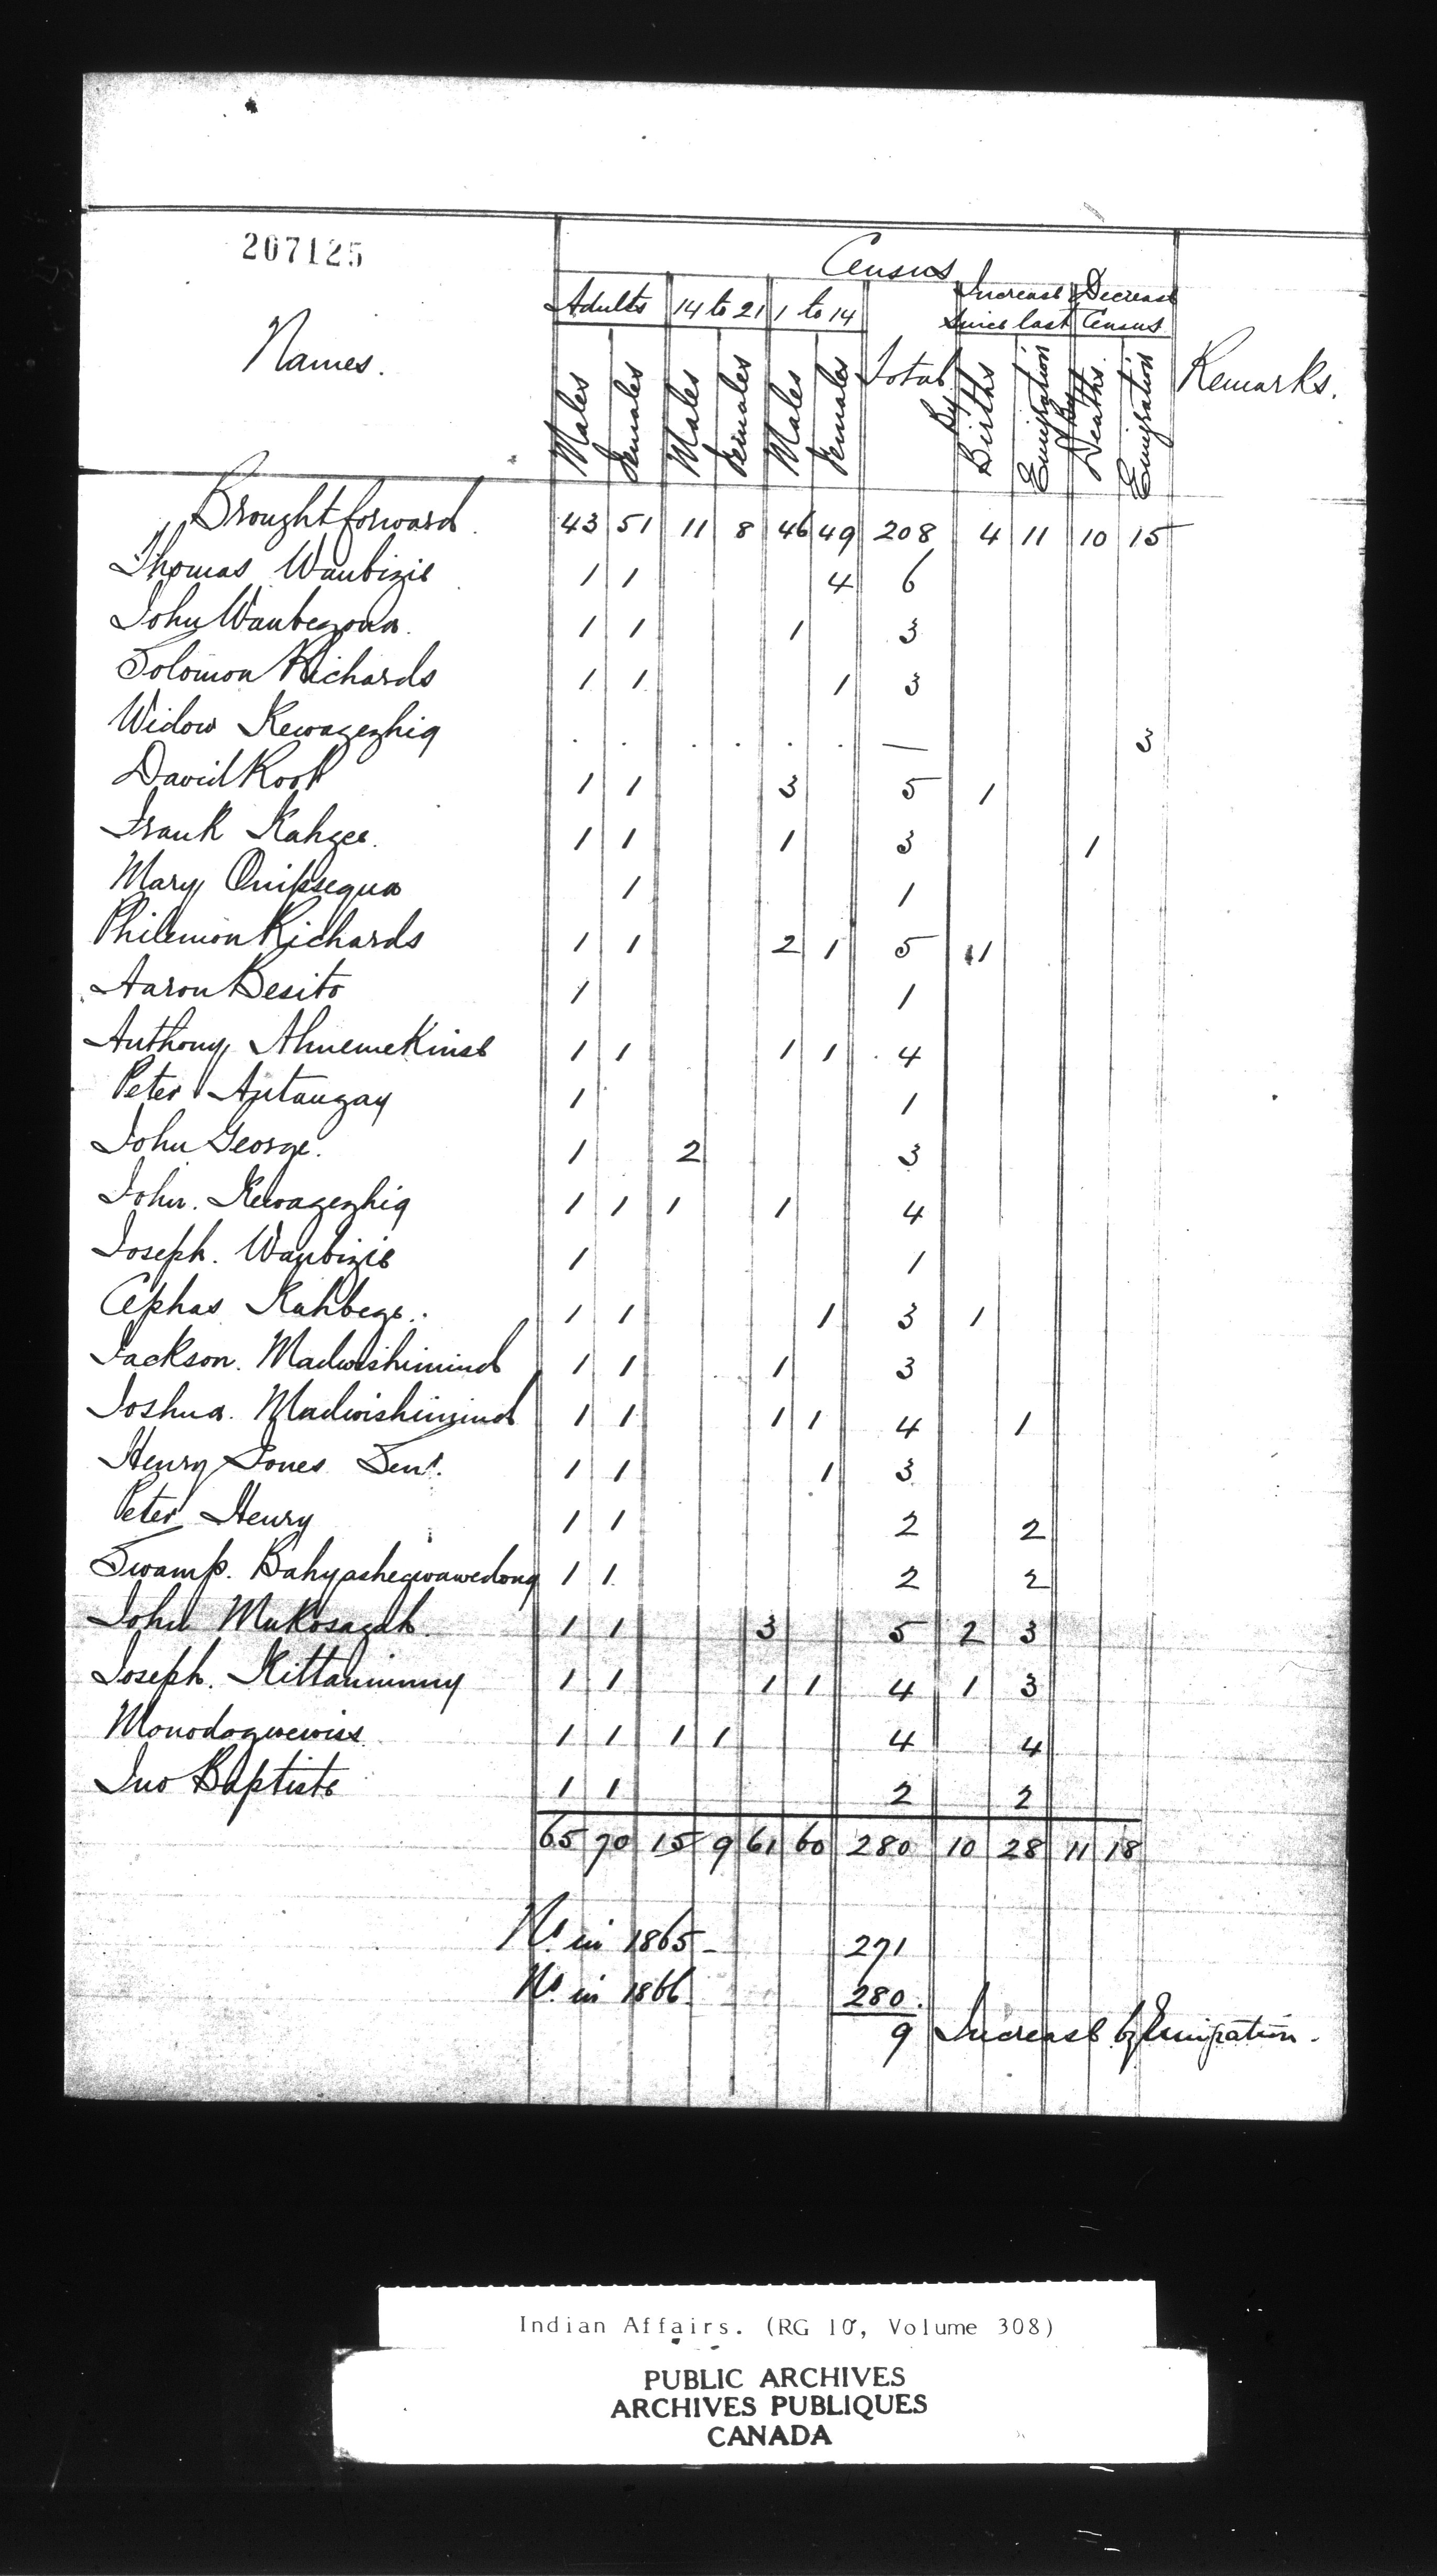 207125
Census
Names.
Adults 14 to 21 1 to 14 Total Increase Decrease Remarks.
Since last Census
Males Females Males Females Males Females By Births Emigration By Deaths Emigration
Brought forward. 43 51 11 8 46 49 208 4 11 10 15
Thomas Waubizie 1 1 4 6
John Waubegoua. 1 1 1 3
Solomon Richards 1 1 1 3
Widow Kewagezhig . . . . . . — 3
David Root 1 1 3 5 1
Frank Kahgee. 1 1 1 3 1
Mary Quipsequa 1 1
Philemon Richards 1 1 2 1 5 1
Aaron Besito 1 1
Anthony Ahnemekinse 1 1 1 1 4
Peter Autaugay 1 1
John George. 1 2 3
John. Kewagezhig 1 1 1 1 4
Joseph. Waubizie 1 1
Cephas Kahbege. 1 1 1 3 1
Jackson. Madwishimind 1 1 1 3
Joshua. Madwishimind 1 1 1 1 4 1
Henry Jones Senr. 1 1 1 3
Peter Henry 1 1 2 2
Swamp. Bahyashegwawedong 1 1 2 2
John Mukosagah. 1 1 3 5 2 3
Joseph. Kittanimmy 1 1 1 1 4 1 3
Monodogwewiss 1 1 1 1 4 4
Jno Baptiste 1 1 2 2
65 70 15 9 61 60 280 10 28 11 18
No. in 1865 271
No. in 1866 280.
9 Increase by Emigration.
Indian Affairs. (RG 10, Volume 308)
PUBLIC ARCHIVES
ARCHIVES PUBLIQUES
CANADA